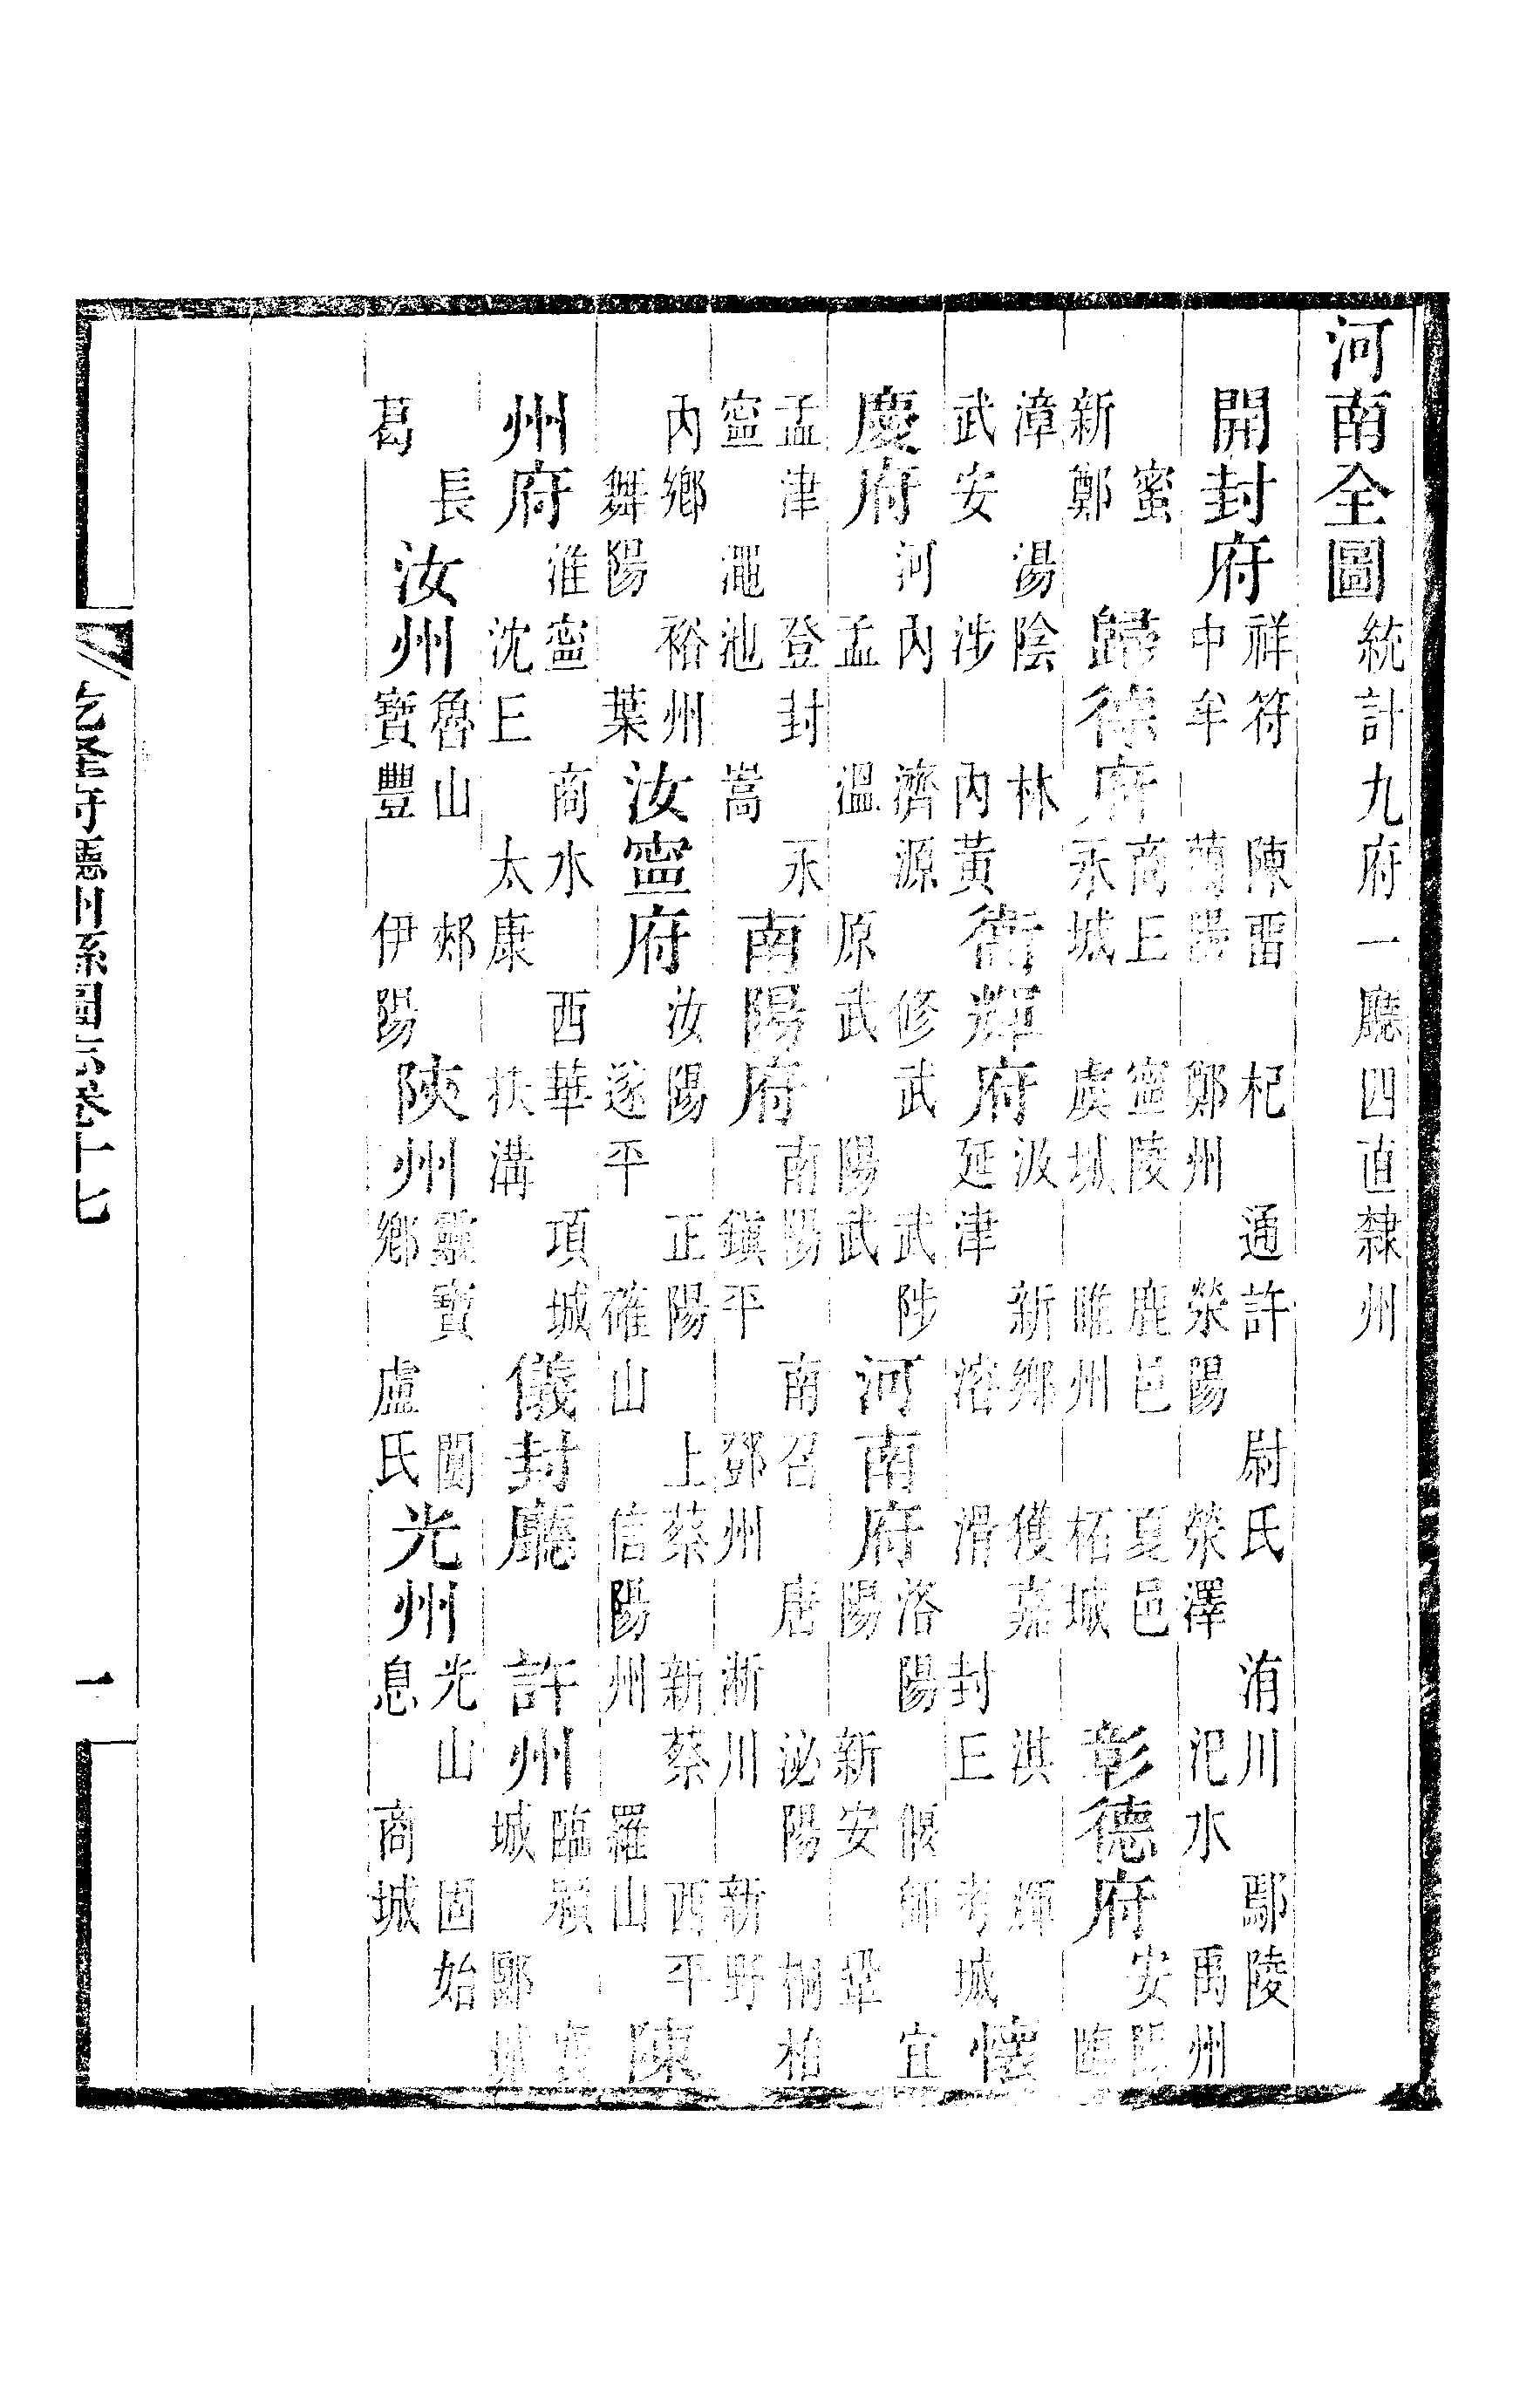 河南全圖 統計九府一廳四直隸州
開封府 祥符 陳畱 杞 通許 尉氏 洧川 鄢陵 中牟 蘭陽 鄭州 滎陽 滎澤 汜水 禹州
蜜 新鄭 歸德府 商丘 寧陵 鹿邑 夏邑 永城 虞城 睢州 柘城 彰德府 安陽 臨
漳 湯陰 林 武安 涉 內黃 衛輝府 汲 新鄉 獲嘉 淇 輝 延津 濬 滑 封丘 考城 懷
慶府 河內 濟源 修武 武陟 孟 溫 原武 陽武 河南府 洛陽 偃師 宜陽 新安 鞏
孟津 登封 永寧 澠池 嵩 南陽府 南陽 南召 唐 泌陽 桐柏 鎭平 鄧州 淅川 新野
內鄉 裕州 舞陽 葉 汝寧府 汝陽 正陽 上蔡 新蔡 西平 遂平 確山 信陽州 羅山 陳
州府 淮寧 商水 西華 項城 沈丘 太康 扶溝 儀封廳 許州 臨潁 襄城 郾城
長葛 汝州 魯山 郟 寶豐 伊陽 陝州 靈寶 閿鄉 盧氏 光州 光山 固始 息 商城
乾隆府廳州縣圖志卷十七 一